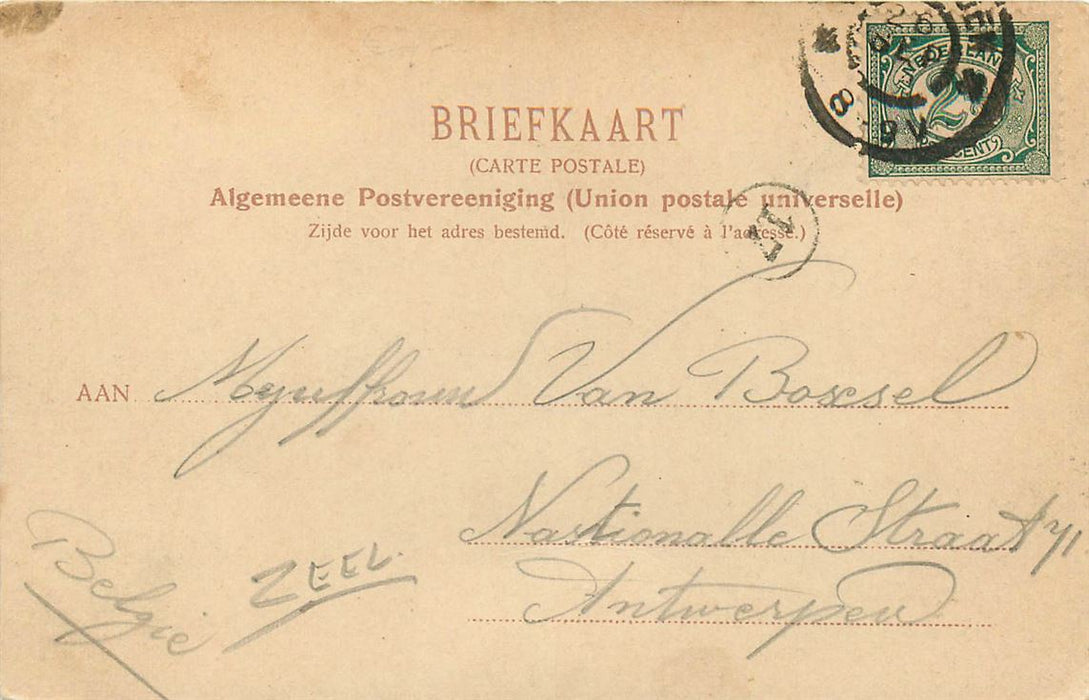 BRIEFKAART
(CARTE POSTALE)
Algemeene Postvereeniging (Union postale universelle)
Zijde voor het adres bestemd. (Côté réservé à l'adresse.)
NEDERLAND
2½
CENT
8-9 V
AAN Mejuffrouw Van Boxsel
Nationalle Straat 71
Antwerpen
België
ZEEL.